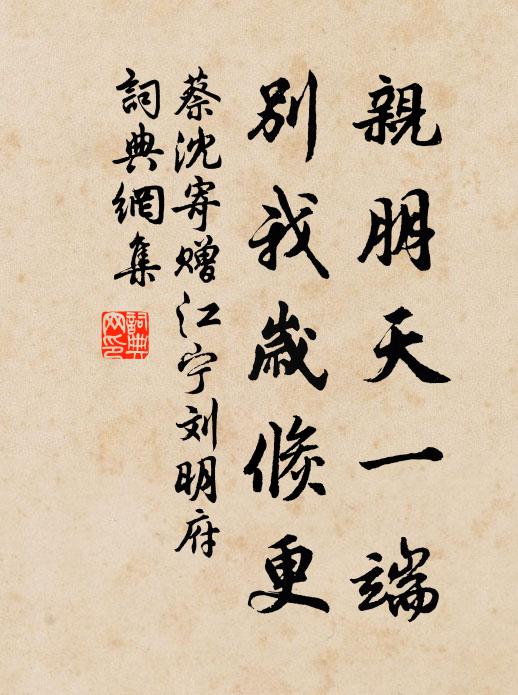 親朋天一端
別我歲倏更
蔡沈寄赠江宁刘明府
詞典網集
詞典
网印